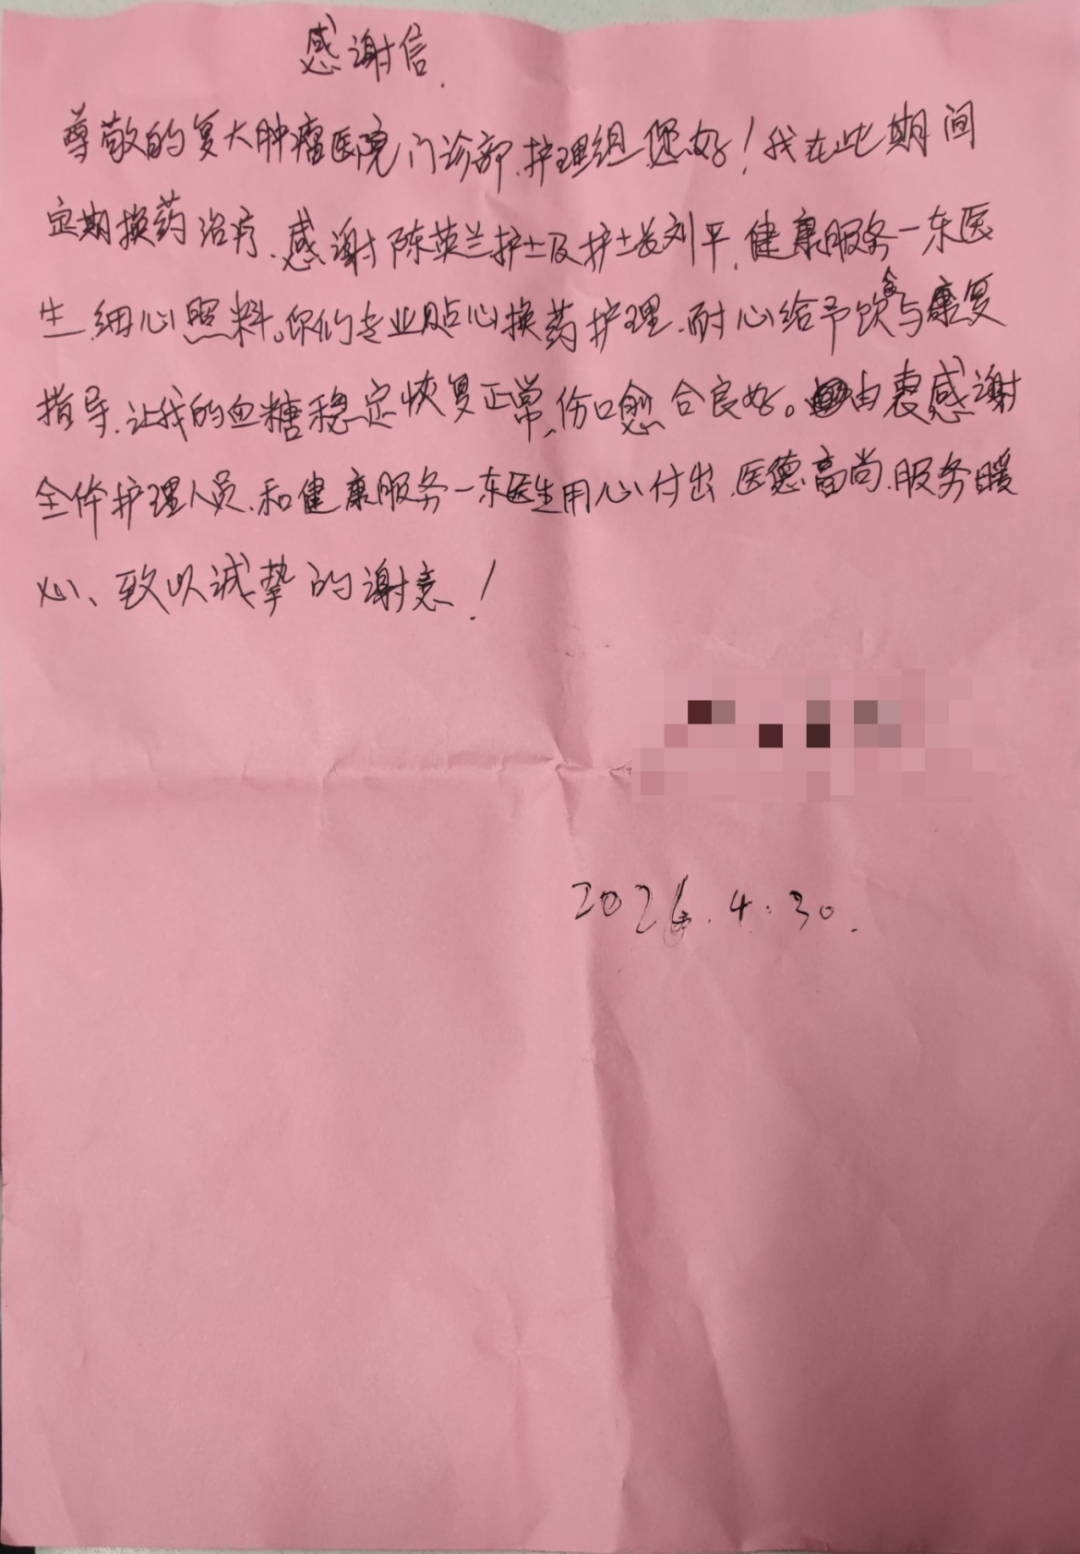 感谢信.
尊敬的复大肿瘤医院门诊部.护理组您好!我在此期间
定期换药治疗.感谢陈英兰护士及护士长刘平,健康服务一东医
生.细心照料。你们专业贴心换药护理.耐心给予饮食与康复
指导.让我的血糖稳定恢复正常,伤口愈合良好。由衷感谢
全体护理人员.和健康服务一东医生用心付出.医德高尚.服务暖
心、致以诚挚的谢意!
2026.4.30.